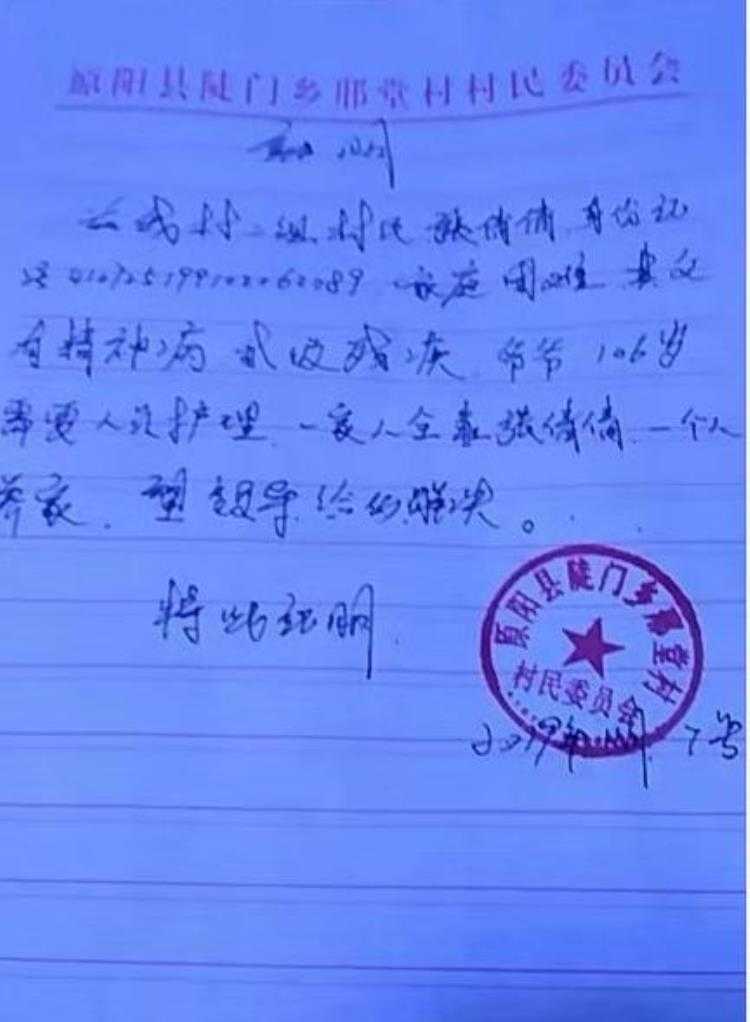 原阳县陡门乡邢堂村村民委员会
证明
兹我村 组村民张倩倩 身份证
家庭困难 其父
有精神病 贰级残疾 爷爷106岁
需要人 护理 一家人全靠张倩倩 一个人
养家 望领导给 解决。
特此证明
原阳县陡门乡邢堂村
村民委员会
2019年 月 7号